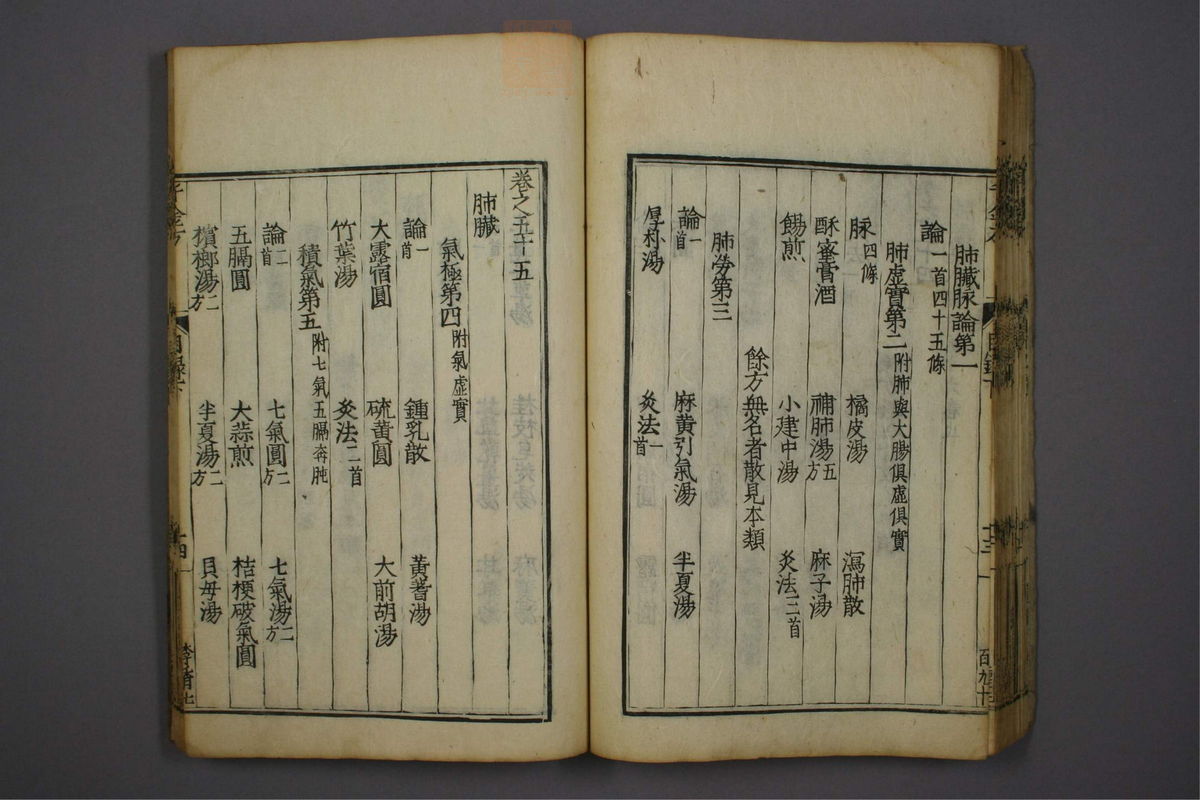 肺臟脉論第一
論一首四十五條
肺虛實第二附肺與大腸俱虛俱實
脉四條 橘皮湯 瀉肺散
酥蜜膏酒 補肺湯五方 麻子湯
餳煎 小建中湯 灸法三首
餘方無名者散見本類
肺勞第三
論一首 麻黃引氣湯 半夏湯
厚朴湯 灸法一首
卷之五十五
肺臟
氣極第四附氣虛實
論一首 鍾乳散 黃蓍湯
大露宿圓 硫黃圓 大前胡湯
竹葉湯 灸法二首
積氣第五附七氣五膈奔肫
論二首 七氣圓二方 七氣湯二方
五膈圓 大蒜煎 桔梗破氣圓
檳榔湯二方 半夏湯二方 貝母湯